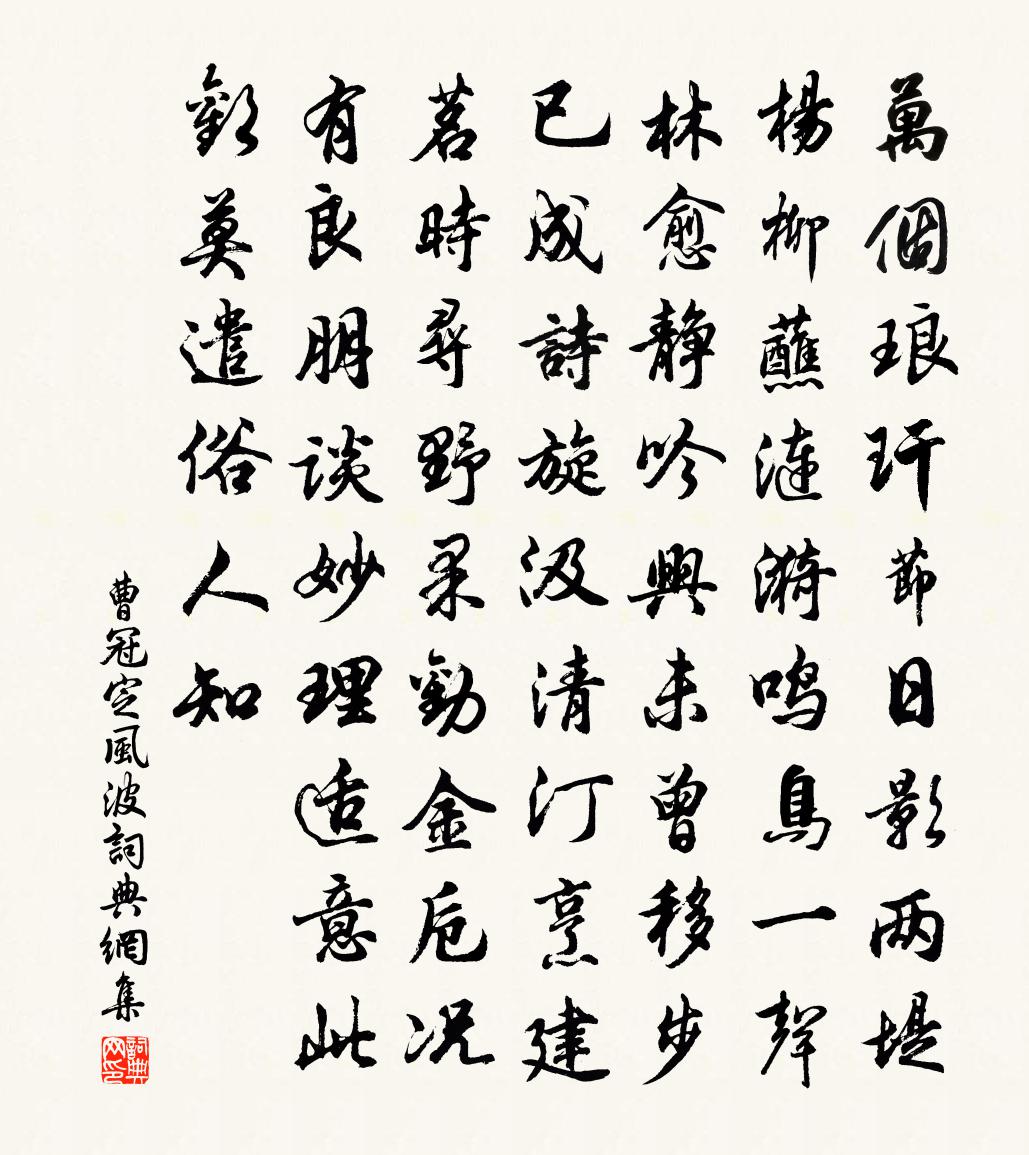 萬個琅玕節日影两堤
楊柳蘸漣漪鳴鳥一聲
林愈静吟興未曾移步
已成詩旋汲清汀烹建
茗時尋野果勸金卮況
有良朋談妙理适意此
歡莫遣俗人知
曹冠定風波詞典網集
詞典网印